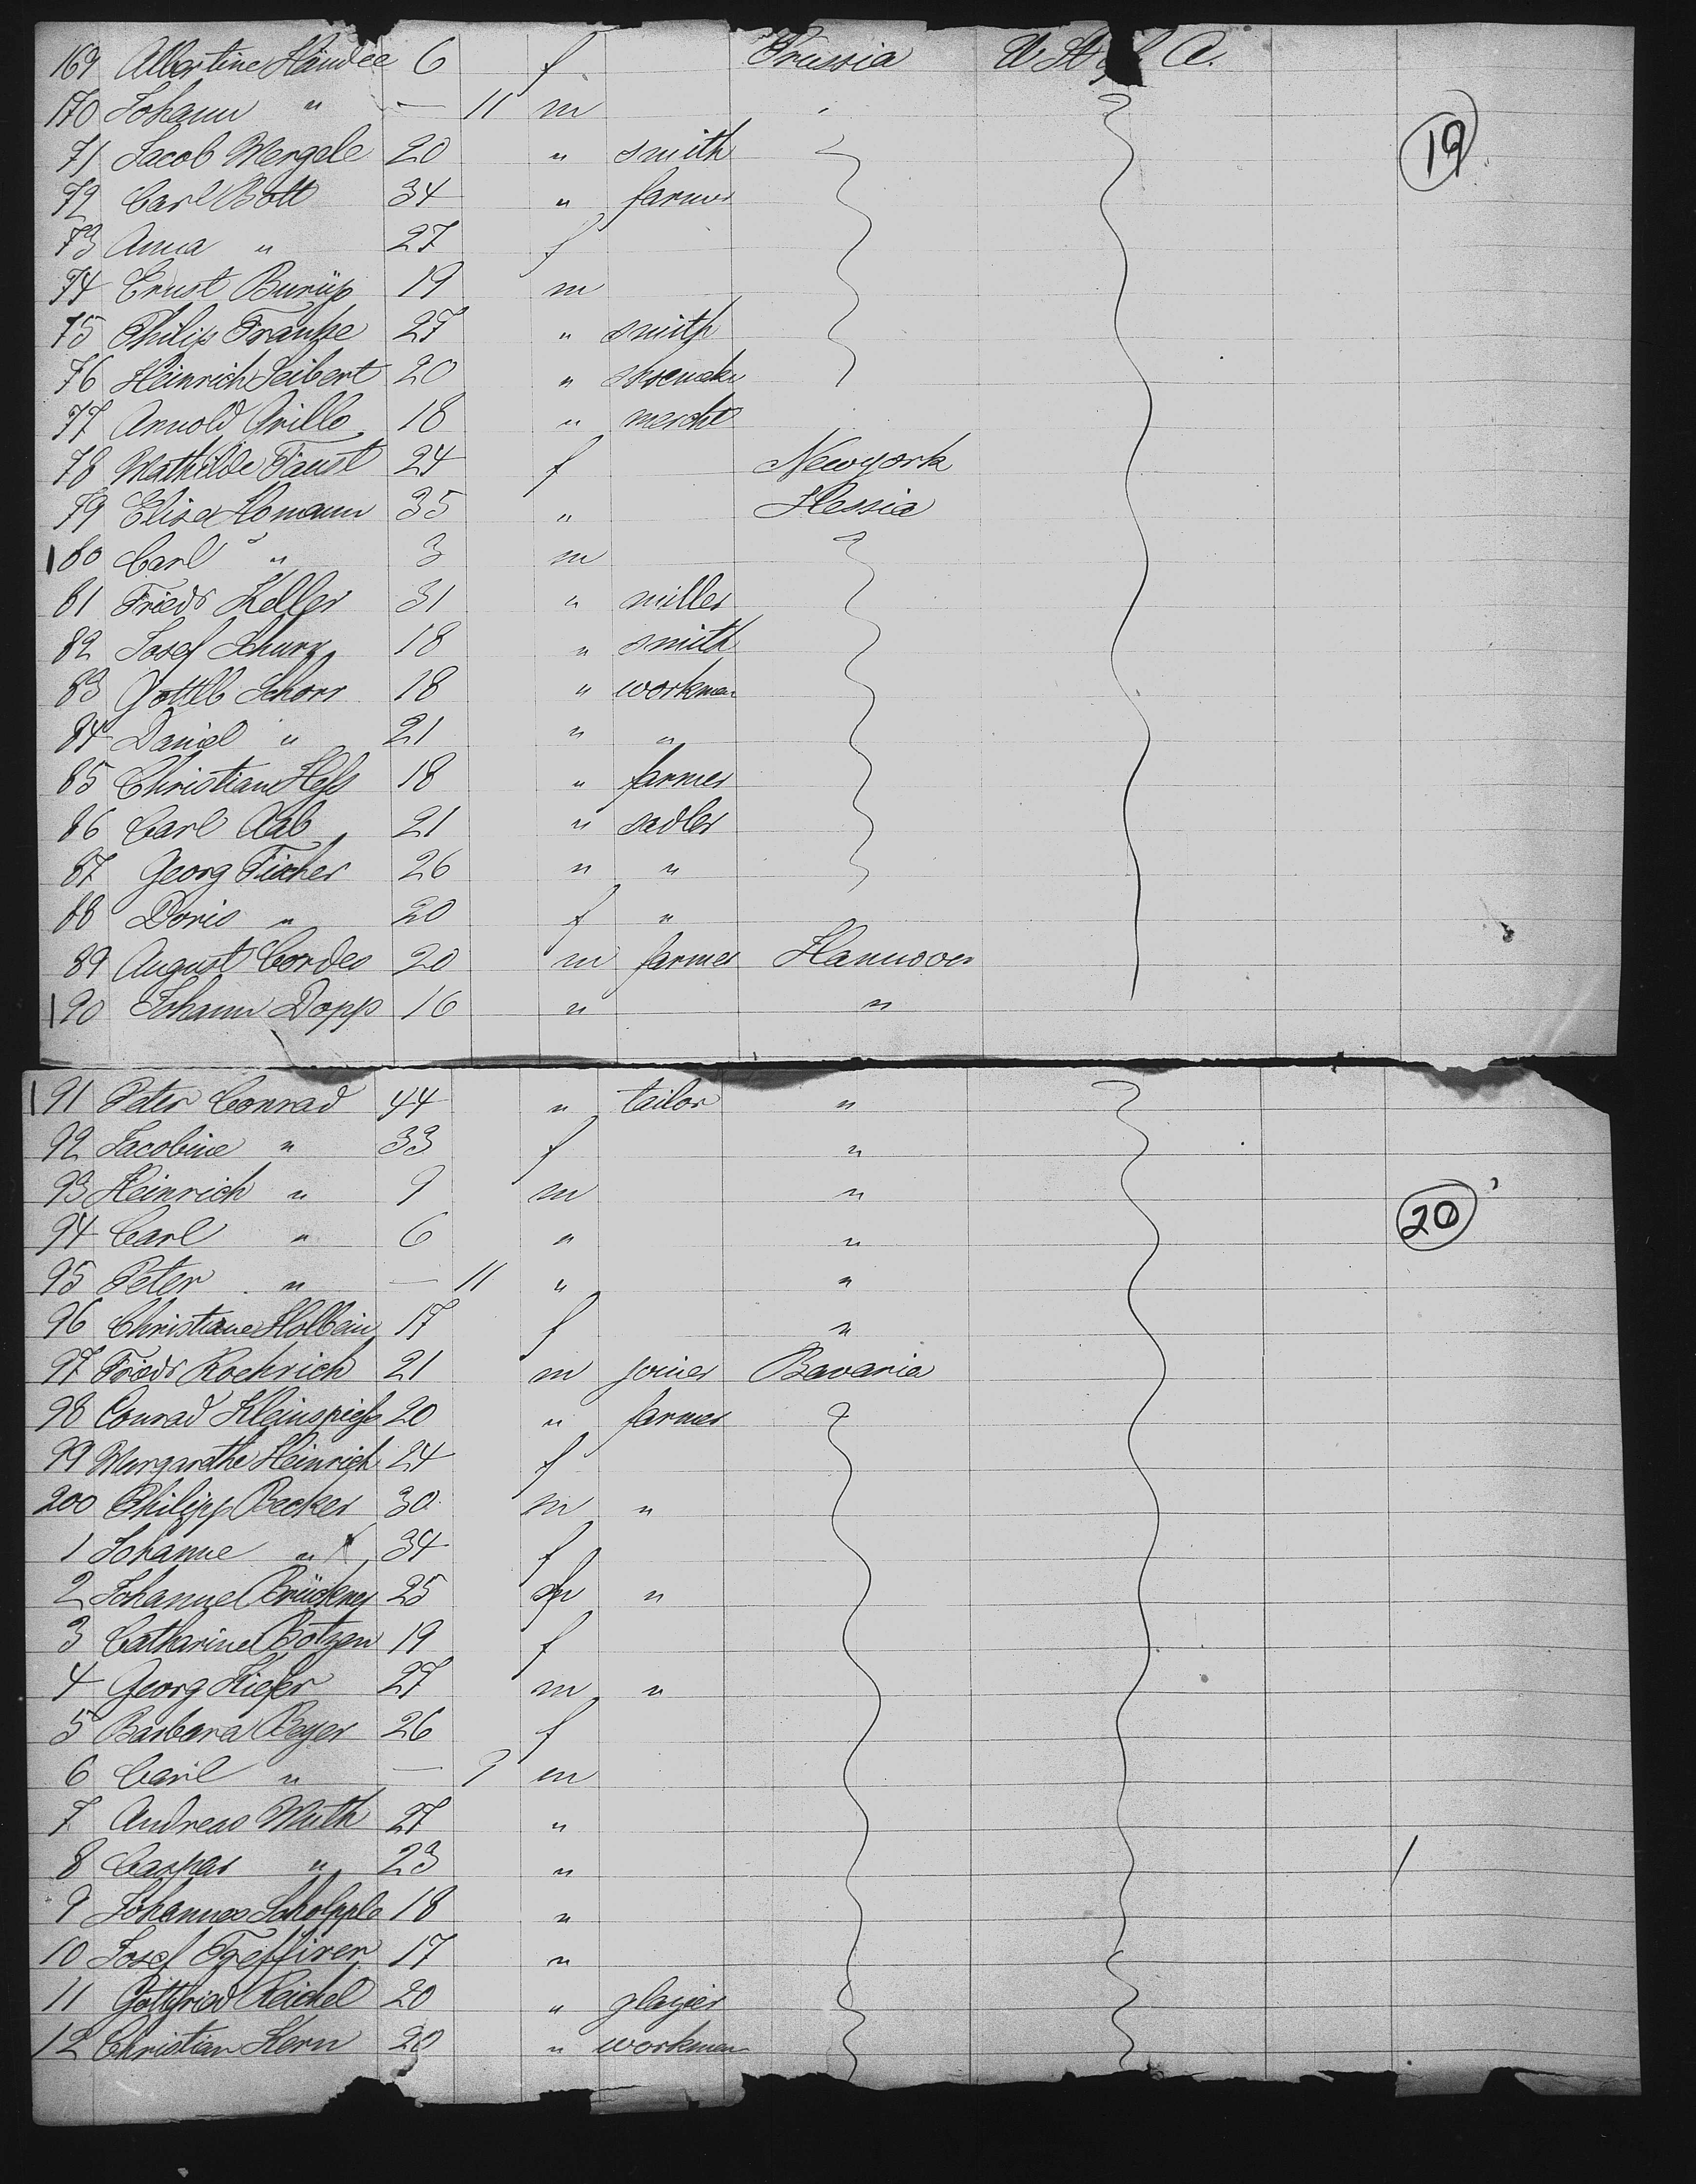 169 Albertine Händce 6 f Prussia U St of A.
170 Johann " — 11 m "
19
71 Jacob Wergele 20 " smith
72 Carl Bott 34 " farmer
73 Anna " 27 f
74 Ernst Burüp 19 m
75 Philip Franke 27 " smith
76 Heinrich Seibert 20 " shoemaker
77 Arnold Grillo 18 " mercht
78 Mathilde Faust 24 f Newyork
79 Elisa Homann 35 " Hessia
180 Carl " 3 m
81 Friedr Keller 31 " miller
82 Josef Schurz 18 " smith
83 Gottlb Schorr 18 " workman
84 Daniel " 21 " "
85 Christian Hess 18 " farmer
86 Carl Aab 21 " sadler
87 Georg Fischer 26 " "
88 Doris " 20 f "
89 August Cordes 20 m farmer Hannover
190 Johann Dopp 16 " "
191 Peter Conrad 44 " tailor "
92 Jacobine " 33 f "
93 Heinrich " 9 m "
94 Carl " 6 " "
20
95 Peter " — 11 " "
96 Christiane Holbein 17 f "
97 Friedr Roehrich 21 m joiner Bavaria
98 Conrad Kleinspiess 20 " farmer
99 Margarethe Heinrich 24 f
200 Philipp Becker 30 m "
1 Johanne " 34 f
2 Johannes Brückner 25 m "
3 Catharine Botzen 19 f
4 Georg Kiefer 27 m "
5 Barbara Beyer 26 f
6 Carl " — 9 m
7 Andreas Muth 27 "
8 Caspar " 23 "
9 Johannes Scholpple 18 "
10 Josef Treffiren 17 "
11 Gottfried Reichel 20 " glazier
12 Christian Kern 20 " workman